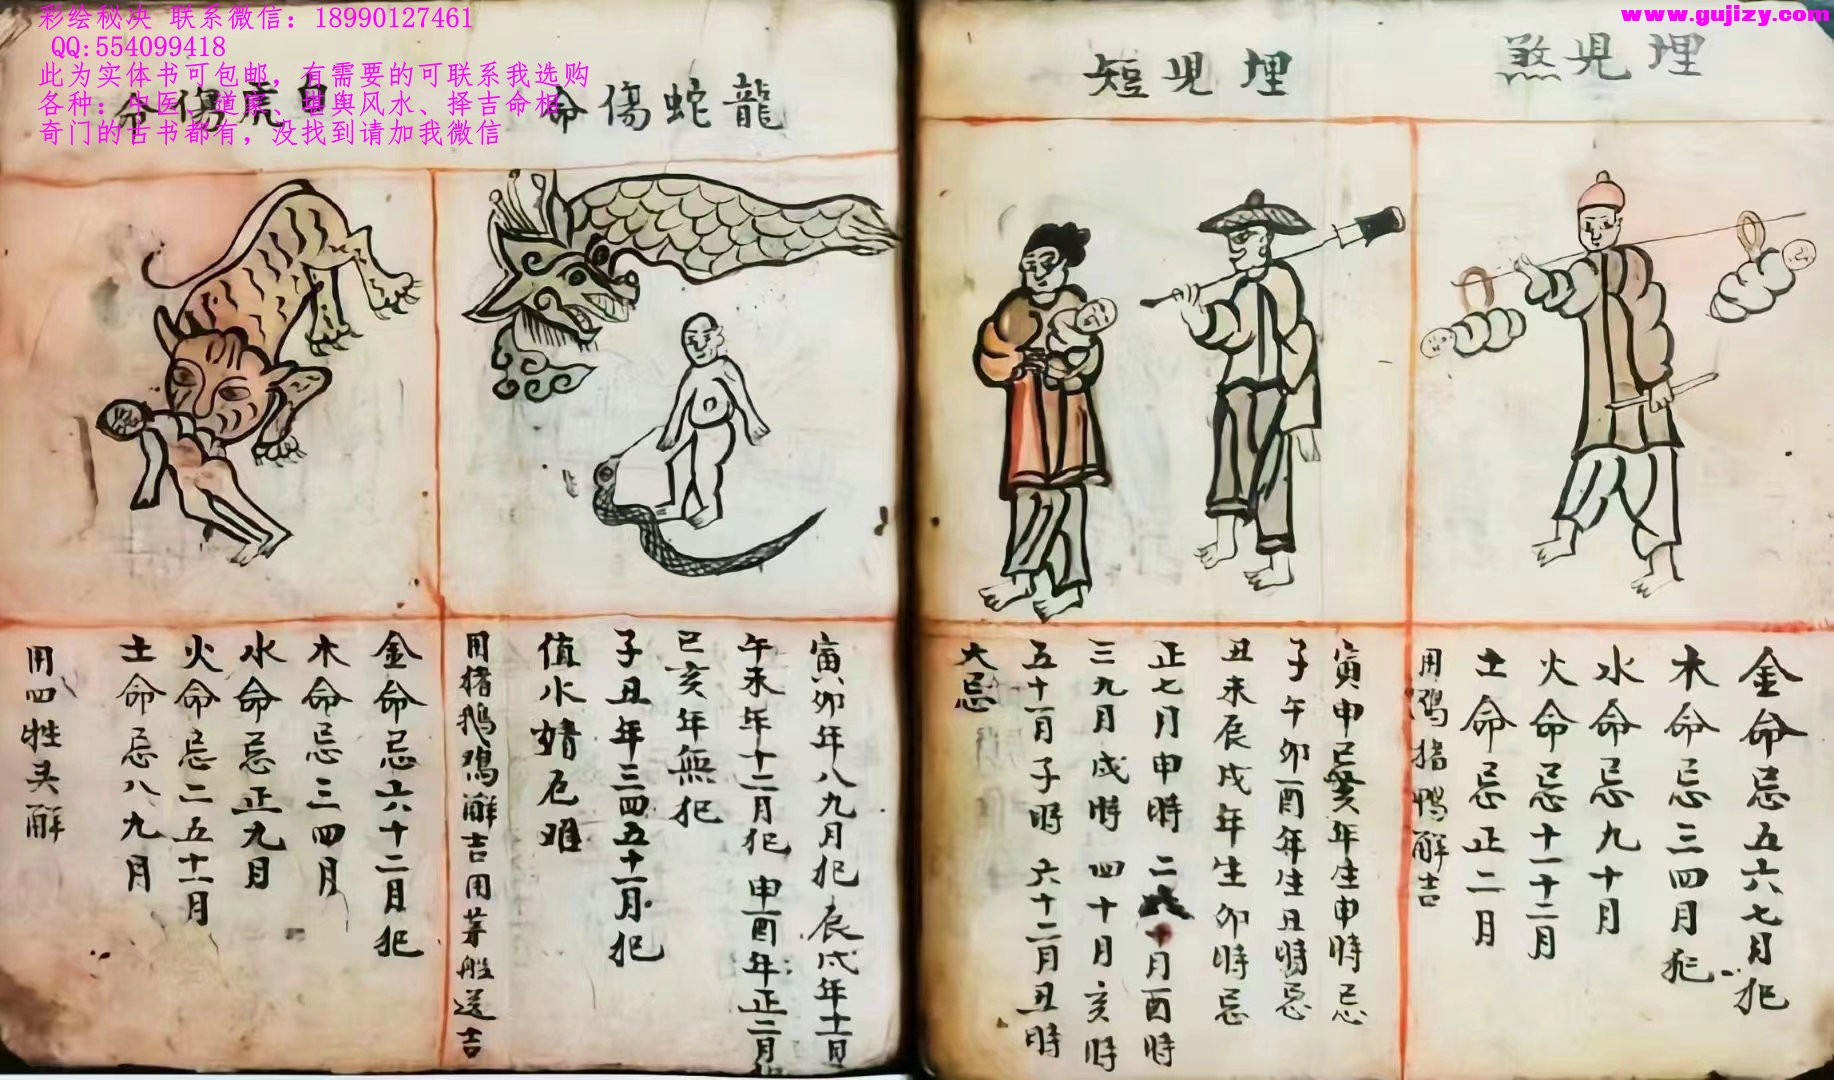 彩绘秘决 联系微信：18990127461
QQ:554099418
此为实体书可包邮，有需要的可联系我选购
各种：中医、道家、堪舆风水、择吉命相
奇门的古书都有，没找到请加我微信
www.gujizy.com
埋児煞
金命忌五六七月犯
木命忌三四月犯
水命忌九十月
火命忌十一十二月
土命忌正二月
用鴻猪鴨解吉
埋児短
寅申巳亥年生申時忌
子午卯酉年生丑時忌
丑未辰戌年生卯時忌
正七月申時 二八十月酉時
三九月戌時 四十月亥時
五十一月子時 六十二月丑時
大忌
龍蛇傷命
寅卯年八九月犯 辰戌年十一月
午未年十二月犯 申酉年正二月犯
巳亥年無犯
子丑年三四五十一月犯
值水蜡厄难
用猪鵝鴻解吉用茅船送吉
白虎傷命
金命忌六十二月犯
木命忌三四月
水命忌正九月
火命忌二五十一月
土命忌八九月
用四牲头解